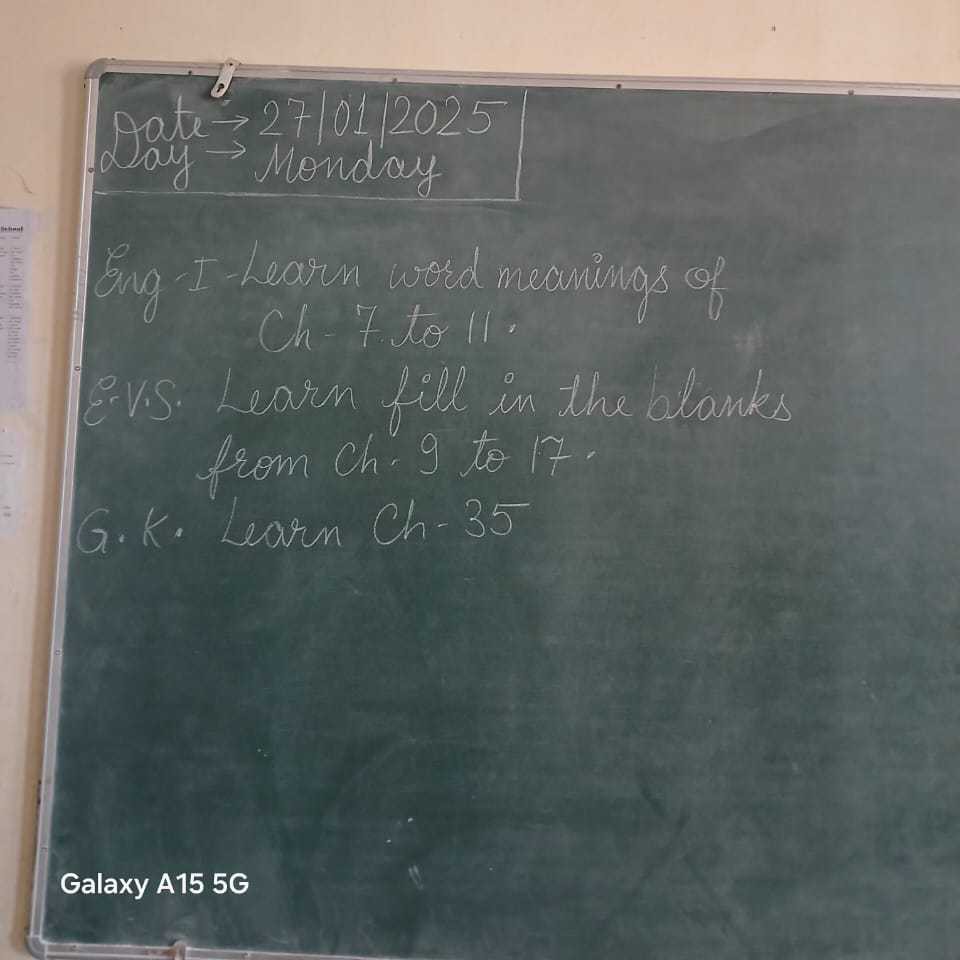 Date → 27/01/2025
Day → Monday
Eng-I-Learn word meanings of
Ch-7 to 11.
E.V.S. Learn fill in the blanks
from Ch. 9 to 17.
G.K. Learn Ch-35
School
Galaxy A15 5G